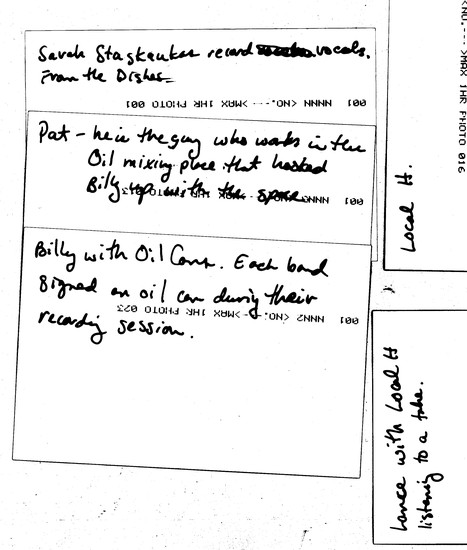 Sarah Staskaukas record vocals.
From the Dishes
001 NNNN <NO.--- >MAX 1HR PHOTO 001
Pat - he is the guy who works in the
Oil mixing place that hooked
Billy up with the space
001 NNNN <NO. >MAX 1HR PHOTO
Billy with Oil Cans. Each band
signed an oil can during their
recording session.
001 NNN2 <NO.- ->MAX 1HR PHOTO 023
<NO.--- >MAX 1HR PHOTO 016
Local H.
Lance with Local H
listening to a take.